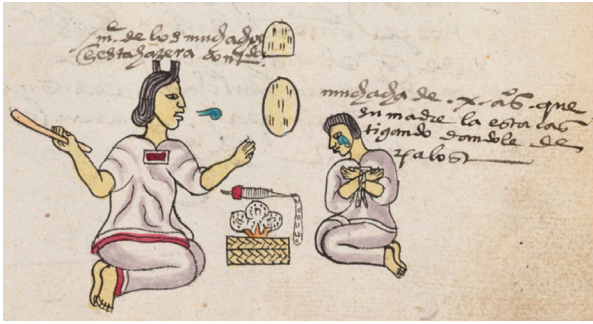 mᵉ. de los muchachos
en esta hazera
muchacha de .x. aºs. que
su madre la esta cas
tigando dandole de
palos